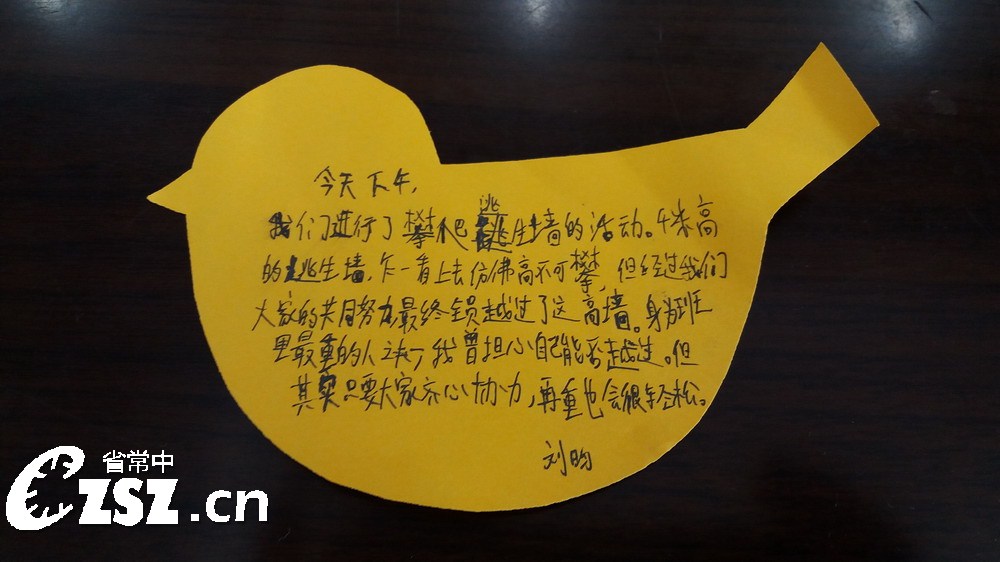 今天下午,
我们进行了攀爬逃生墙的活动。4米高
的逃生墙,乍一看上去仿佛高不可攀,但经过我们
大家的共同努力最终全员越过了这高墙。身为班
里最重的人之一,我曾担心自己能否越过。但
其实只要大家齐心协力,再重也会很轻松。
刘昀
省常中
CZSZ.cn